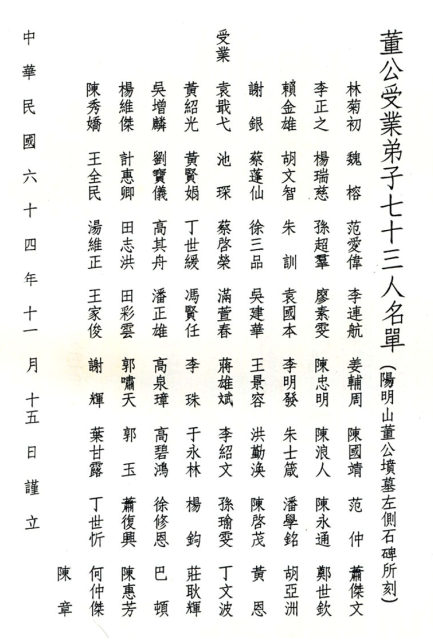 董公受業弟子七十三人名單(陽明山董公墳墓左側石碑所刻)
林菊初 魏榕 范愛偉 李連航 姜輔周 陳國靖 范仲 蕭傑文
李正之 楊瑞慈 孫超羣 廖素雯 陳忠明 陳浪人 陳永通 鄭世欽
賴金雄 胡文智 朱訓 袁國本 李明發 朱士箴 潘學銘 胡亞洲
謝銀 蔡蓬仙 徐三品 吳建華 王景容 洪勤渙 陳啓茂 黃恩
受業 袁戢戈 池琛 蔡啓榮 滿萱春 蔣雄斌 李紹文 孫瑜雯 丁文波
黃紹光 黃賢娟 丁世緩 馮賢任 李珠 于永林 楊鈞 莊耿輝
吳增麟 劉寶儀 高其舟 潘正雄 高泉璋 高碧鴻 徐修恩 巴頓
楊維傑 計惠卿 田志洪 田彩雲 郭嘯天 郭玉 蕭復興 陳惠芳
陳秀嬌 王全民 湯維正 王家俊 謝輝 葉甘露 丁世忻 何仲傑
陳章
中華民國六十四年十一月十五日謹立